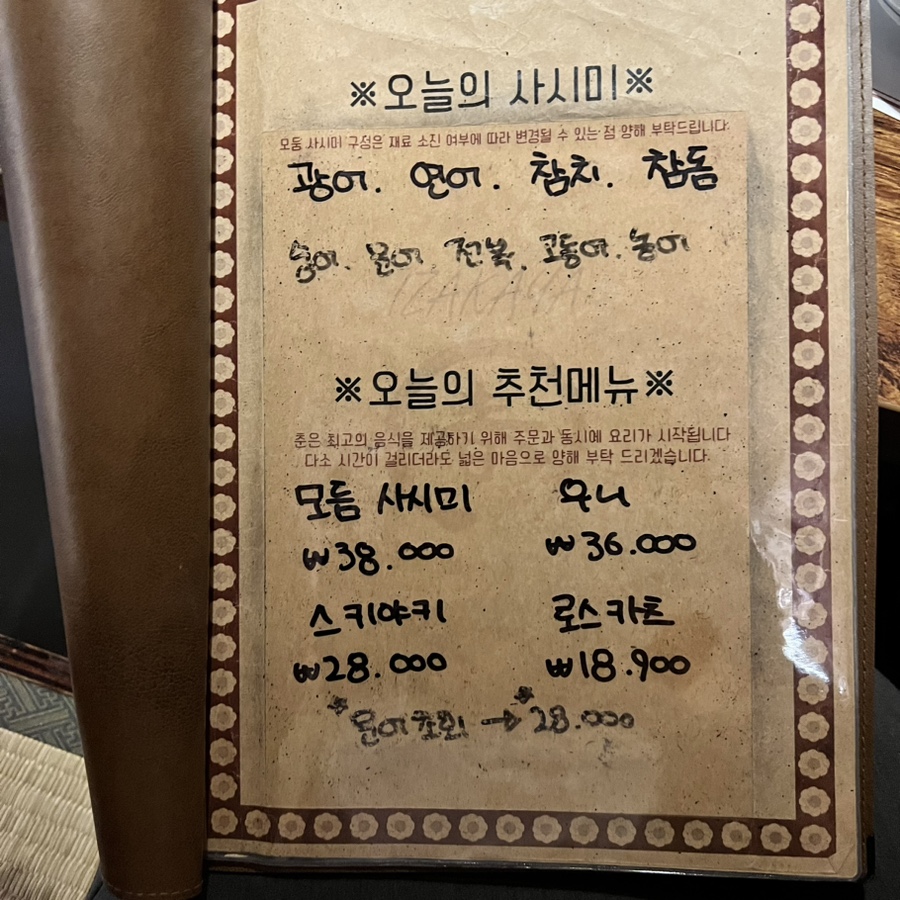 ※오늘의 사시미※
모둠 사시미 구성은 재료 소진 여부에 따라 변경될 수 있는 점 양해 부탁드립니다.
광어. 연어. 참치. 참돔
숭어. 문어 전복. 고등어. 농어
IZAKAYA
※오늘의 추천메뉴※
춘은 최고의 음식을 제공하기 위해 주문과 동시에 요리가 시작됩니다
다소 시간이 걸리더라도 넓은 마음으로 양해 부탁 드리겠습니다.
모듬 사시미 우니
₩38.000 ₩36.000
스키야키 로스카츠
₩28.000 ₩18.900
*문어초회 → *28.000